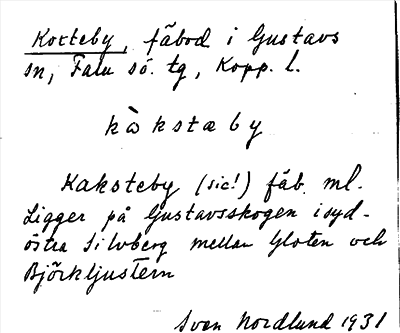 Korteby, fäbod i Gustavs
sn, Falu sö. tg, Kopp. l.
kàkstæby
Kaksteby (sic!) fäb. ml.
Ligger på Gustavsskogen i syd-
östra Silvberg mellan Gloten och
Björkljustern
Sven Nordlund 1931